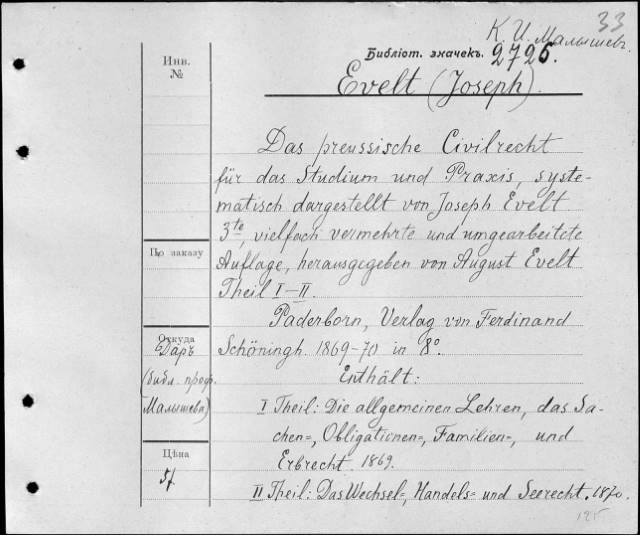 33
К. И. Малышев.
Библіот. значекъ. 2726.
Инв.
№
Evelt (Joseph).
Das preussische Civilrecht
für das Studium und Praxis, syste-
matisch dargestellt von Joseph Evelt
3te, vielfach vermehrte und umgearbeitete
По заказу
Auflage, herausgegeben von August Evelt
Theil I–II.
Paderborn, Verlag von Ferdinand
Откуда
Даръ
Schöningh. 1869-70 in 8°.
(библ. проф.
Малышева)
Enthält:
I Theil: Die allgemeinen Lehren, das Sa-
chen=, Obligationen=, Familien=, und
Erbrecht. 1869.
Цѣна
II Theil: Das Wechsel=, Handels= und Seerecht. 1870.